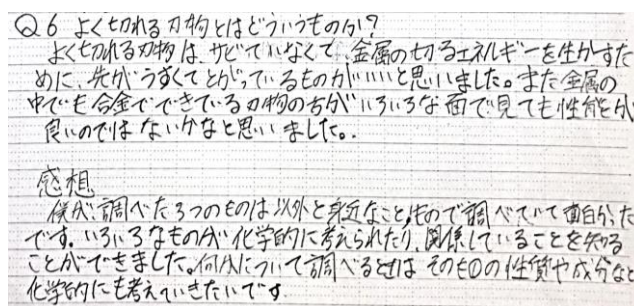 Q6 よく切れる刃物とはどういうものか?
よく切れる刃物は、サビていなくて、金属の切るエネルギーを生かすた
めに、先がうすくてとがっているものがいいと思いました。また金属の
中でも合金でできている刃物の方がいろいろな面で見ても性能が
良いのではないかなと思いました。
感想
僕が、調べた3つのものは以外と身近なこと、もので調べていて面白かった
です。いろいろなものが化学的に考えられたり、関係していることを知る
ことができました。何かについて調べるときは そのものの性質や成分など
化学的にも考えていきたいです